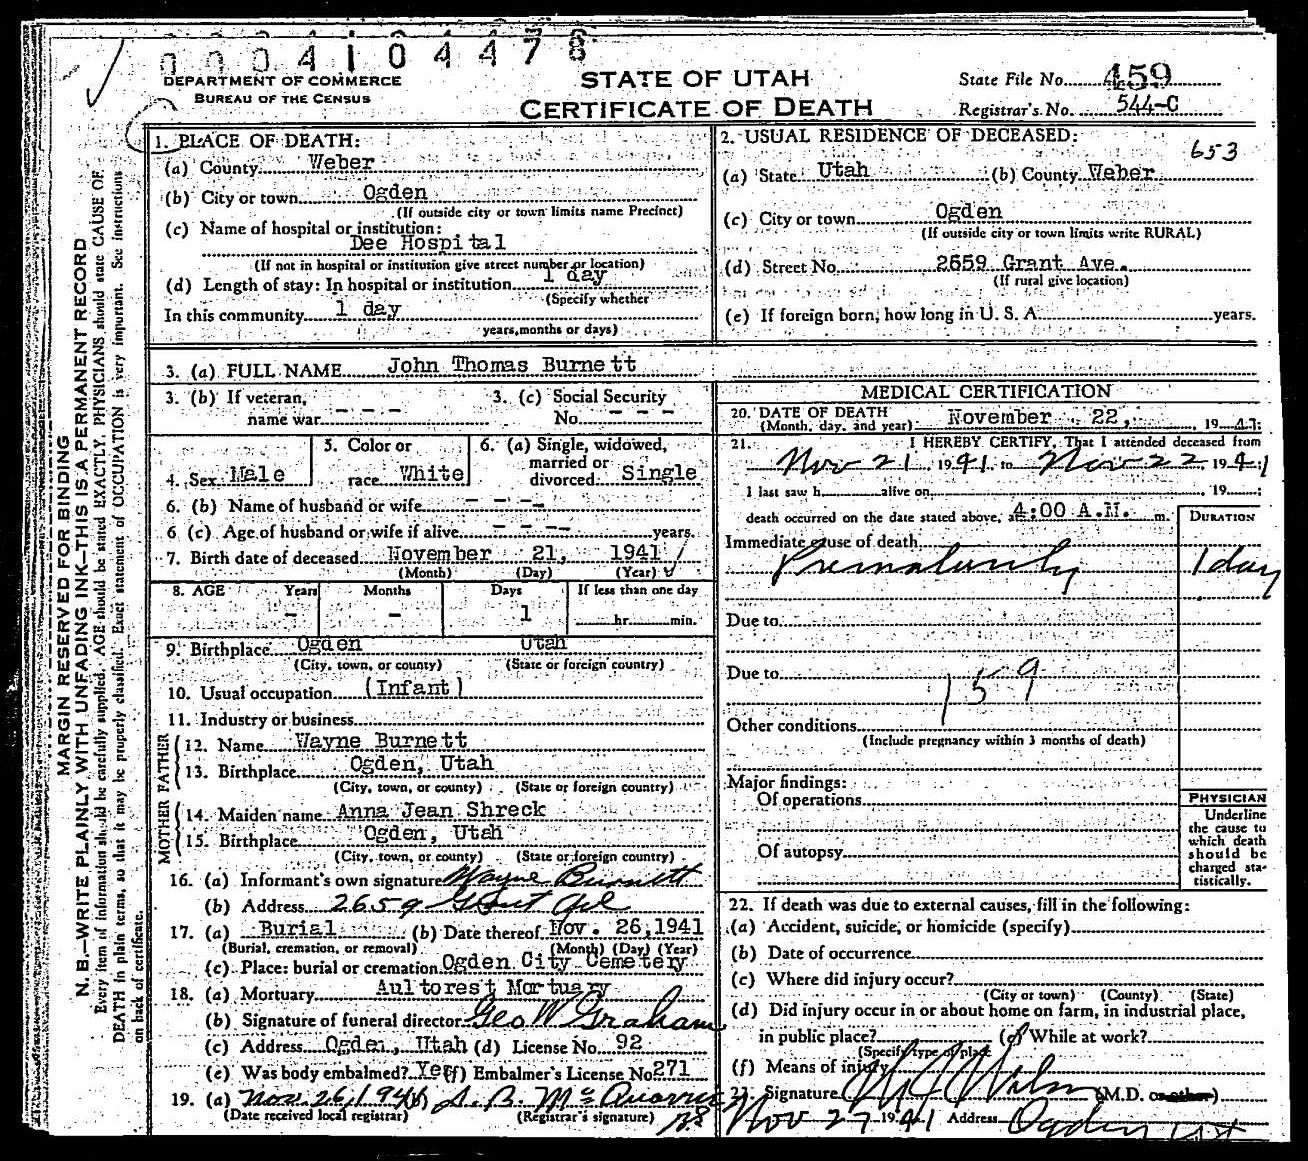 0004104478
DEPARTMENT OF COMMERCE
BUREAU OF THE CENSUS
STATE OF UTAH
CERTIFICATE OF DEATH
State File No. 459
Registrar's No. 544-C
MARGIN RESERVED FOR BINDING
N. B.—WRITE PLAINLY WITH UNFADING INK—THIS IS A PERMANENT RECORD
Every item of information should be carefully supplied. AGE should be stated EXACTLY. PHYSICIANS should state CAUSE OF
DEATH in plain terms, so that it may be properly classified. Exact statement of OCCUPATION is very important. See instructions
on back of certificate.
1. PLACE OF DEATH:
(a) County Weber
(b) City or town Ogden
(If outside city or town limits name Precinct)
(c) Name of hospital or institution:
Dee Hospital
(If not in hospital or institution give street number or location)
(d) Length of stay: In hospital or institution 1 day
(Specify whether
In this community 1 day
years, months or days)
2. USUAL RESIDENCE OF DECEASED:
653
(a) State Utah (b) County Weber
(c) City or town Ogden
(If outside city or town limits write RURAL)
(d) Street No. 2659 Grant Ave.
(If rural give location)
(e) If foreign born, how long in U. S. A. years.
3. (a) FULL NAME John Thomas Burnett
3. (b) If veteran, name war - - -
3. (c) Social Security No. - - -
4. Sex Male
5. Color or race White
6. (a) Single, widowed, married or divorced Single
6. (b) Name of husband or wife - - -
6 (c) Age of husband or wife if alive - - - - years.
7. Birth date of deceased November 21, 1941
(Month) (Day) (Year)
8. AGE Years Months Days If less than one day
- - 1 hr. min.
9. Birthplace Ogden Utah
(City, town, or county) (State or foreign country)
10. Usual occupation (Infant)
11. Industry or business
FATHER
12. Name Wayne Burnett
13. Birthplace Ogden, Utah
(City, town, or county) (State or foreign country)
MOTHER
14. Maiden name Anna Jean Shreck
15. Birthplace Ogden, Utah
(City, town, or county) (State or foreign country)
16. (a) Informant's own signature Wayne Burnett
(b) Address 2659
17. (a) Burial (b) Date thereof Nov. 26, 1941
(Burial, cremation, or removal) (Month) (Day) (Year)
(c) Place: burial or cremation Ogden City Cemetery
18. (a) Mortuary Aultorest Mortuary
(b) Signature of funeral director Geo W Graham
(c) Address Ogden, Utah (d) License No. 92
(e) Was body embalmed? Yes (f) Embalmer's License No. 271
19. (a) Nov. 26, 1941 (b)
(Date received local registrar) (Registrar's signature)
MEDICAL CERTIFICATION
20. DATE OF DEATH
(Month, day, and year) November 22, 1941
21. I HEREBY CERTIFY, That I attended deceased from
Nov 21 1941 to Nov 22 1941
I last saw h alive on , 19 ;
death occurred on the date stated above, at 4:00 A.M. m.
DURATION
Immediate cause of death
Prematurity 1 day
Due to
Due to
159
Other conditions
(Include pregnancy within 3 months of death)
Major findings:
Of operations
Of autopsy
PHYSICIAN
Underline
the cause to
which death
should be
charged sta-
tistically.
22. If death was due to external causes, fill in the following:
(a) Accident, suicide, or homicide (specify)
(b) Date of occurrence
(c) Where did injury occur?
(City or town) (County) (State)
(d) Did injury occur in or about home on farm, in industrial place,
in public place? (e) While at work?
(Specify type of place
(f) Means of injury
23. Signature (M.D. or other)
Nov 27 1941 Address Ogden